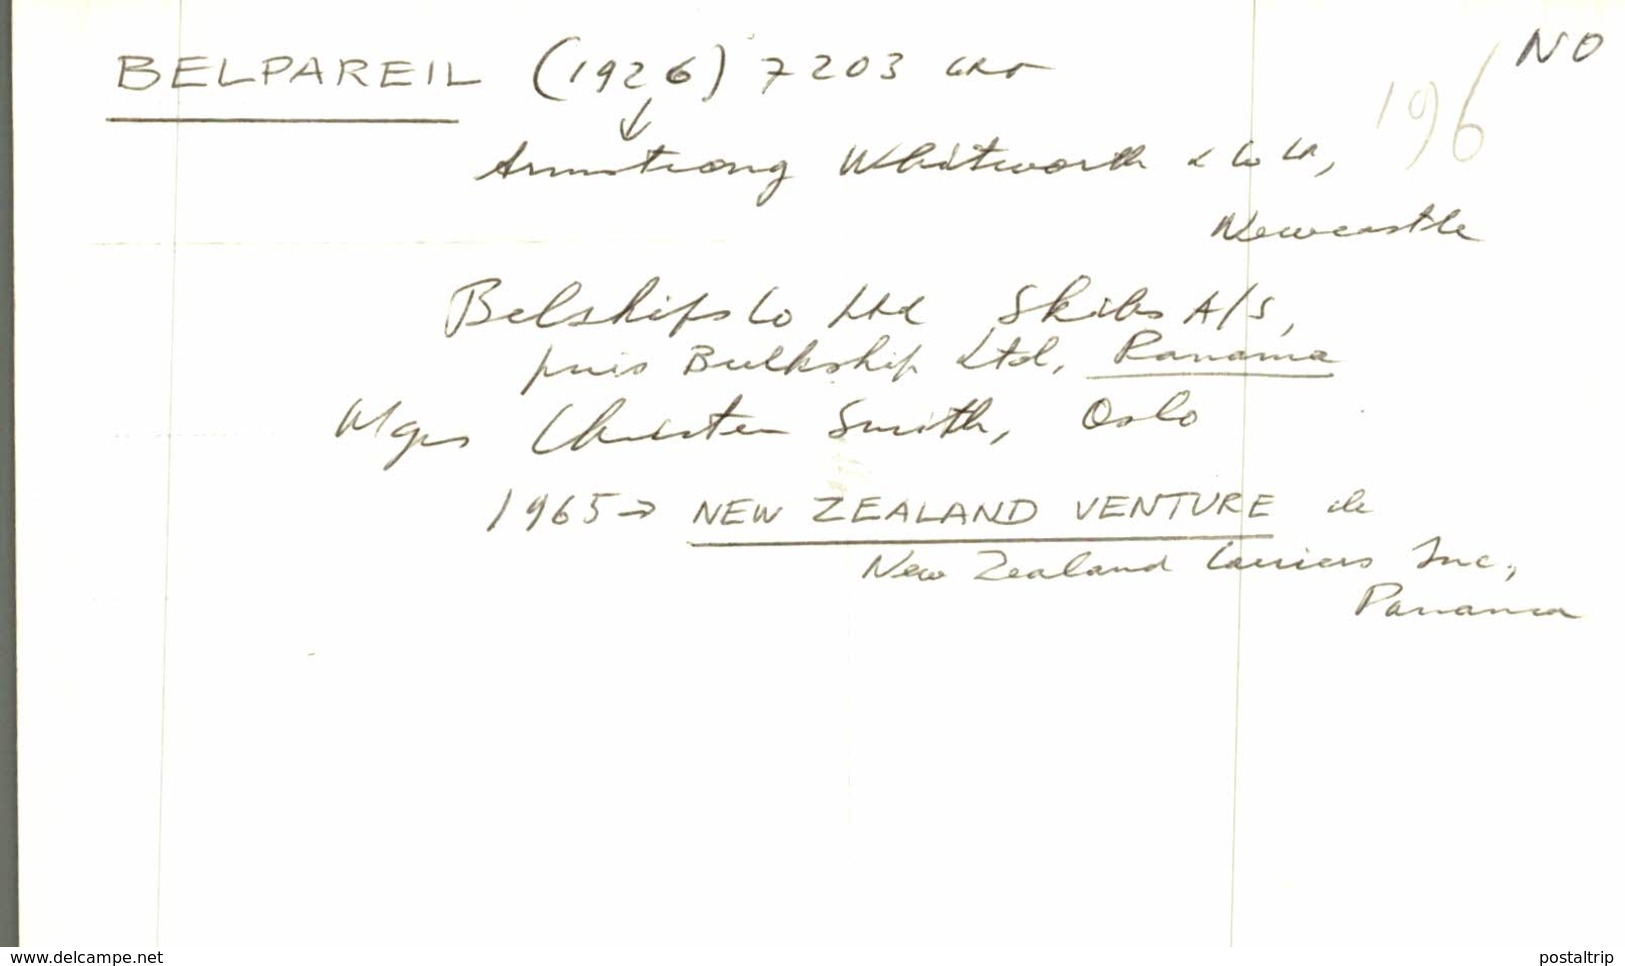 NO
BELPAREIL (1926) 7203 GRT
196
Armstrong Whitworth & Co Ld,
Newcastle
Belships Co Ltd Skibs A/S,
puis Bulkship Ltd, Panama
Mgrs Christen Smith, Oslo
1965→ NEW ZEALAND VENTURE de
New Zealand Carriers Inc,
Panama
www.delcampe.net
postaltrip